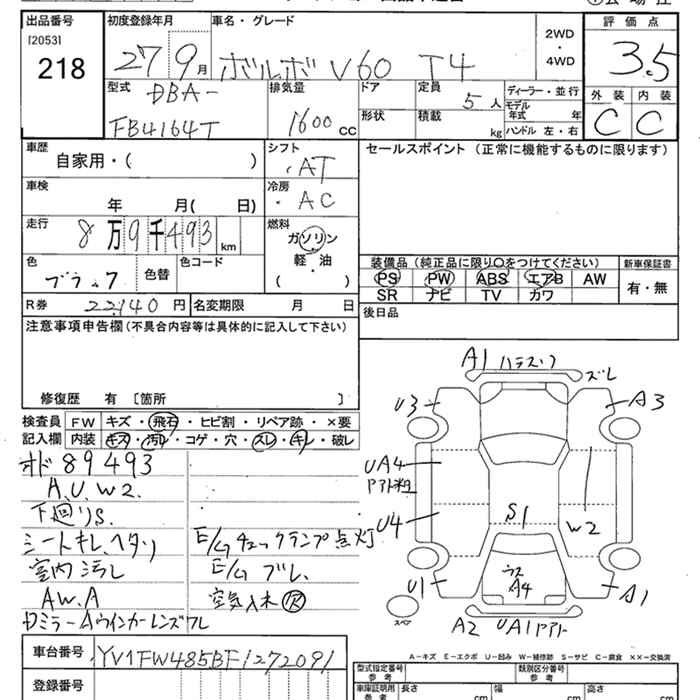 出品番号 初度登録年月 車名・グレード 評価点
[2053]
218 27 9月 ボルボ V60 T4 2WD・4WD 3.5
型式 DBA- 排気量 ドア 定員 5人 ディーラー・並行 外装 内装
FB4164T 1600cc 形状 積載 kg モデル年式 年 C C
ハンドル 左・右
車歴 シフト セールスポイント (正常に機能するものに限ります)
自家用・( ) AT
車検 冷房
年 月( 日) AC
走行 燃料
8万9千493km ガソリン
軽・油
( )
色 色替 色コード
ブラック
装備品 (純正品に限り○をつけてください) 新車保証書
PS PW ABS エアB AW 有・無
SR ナビ TV カワ
R券 22140円 名変期限 月 日
後日品
注意事項申告欄(不具合内容等は具体的に記入して下さい)
修復歴 有 [箇所 ]
検査員 FW キズ・飛石・ヒビ割・リペア跡・×要
記入欄 内装 キズ・汚れ・コゲ・穴・スレ・キレ・破レ
オド89493
A.U.W2.
下廻りS.
シートキレ、ヘタリ
室内汚レ
AW.A
ドミラーAウインカーレンズワレ
E/Gチェックランプ点灯
E/Gブレ.
空気入木欠
A1 ハテズレ ズレ
U3 A3
UA4
アアト
U4 S1 W2
U1 ウス A4 A1
スペア
A2 UA1アアト
A-キズ E-エクボ U-凹み W-補修跡 S-サビ C-腐食 ××-交換済
車台番号 YV1FW485BF1272091
登録番号
型式指定番号 参考 類別区分番号 参考
車庫証明用 参考 長さ cm 幅 cm 高さ cm